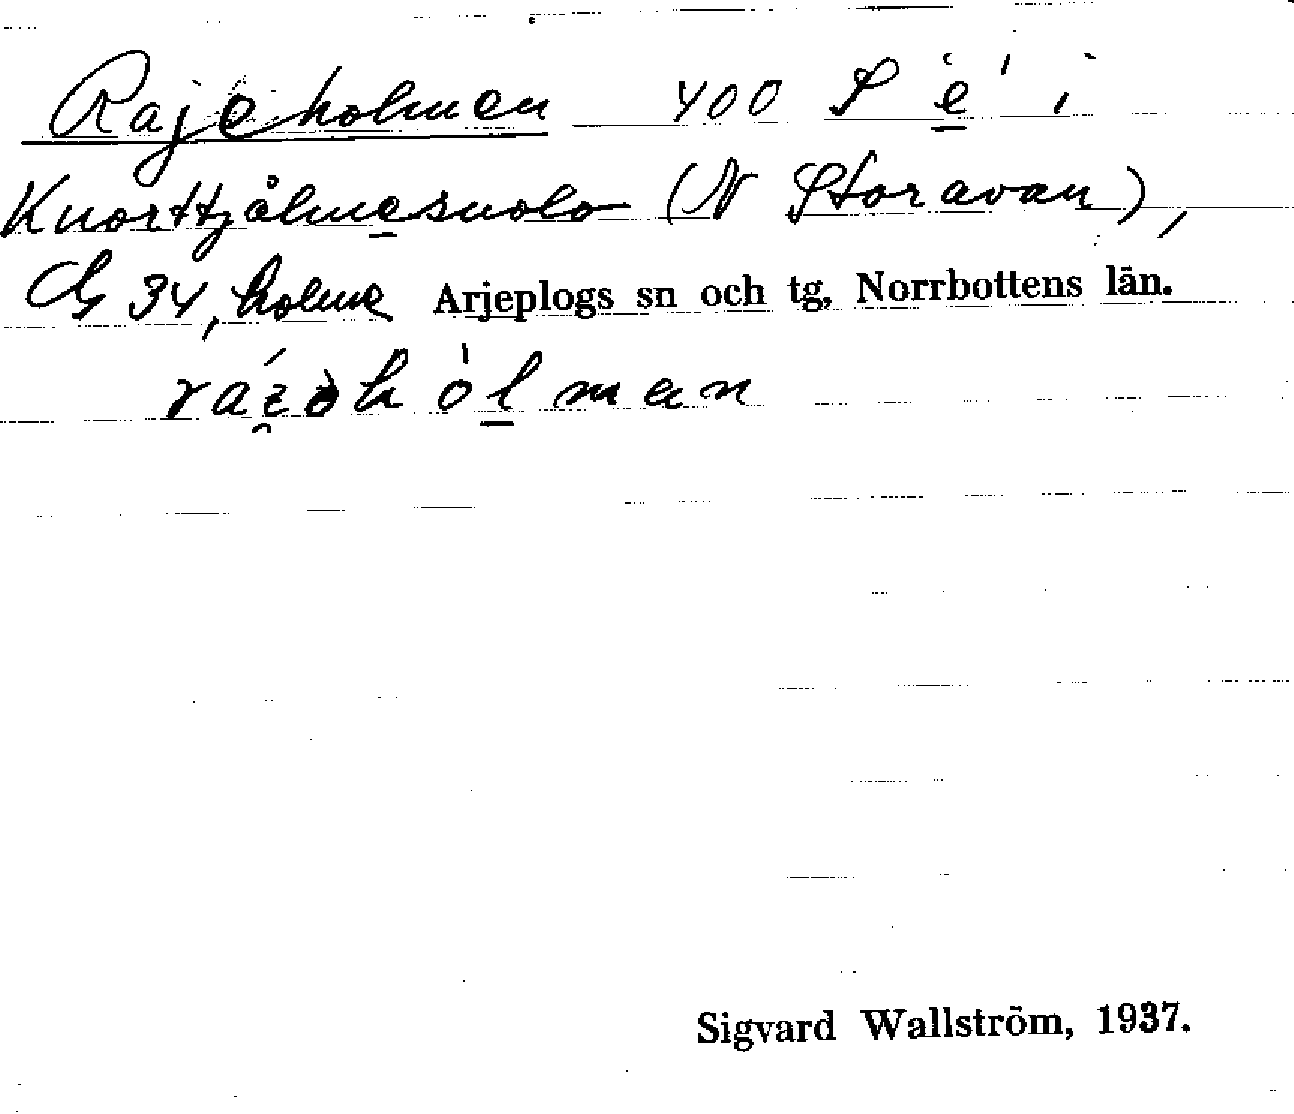 Rajeholmen 400 S
Knorttjålmesuolo (N Storavan),
34, holme Arjeplogs sn och tg, Norrbottens län.
Sigvard Wallström, 1937.